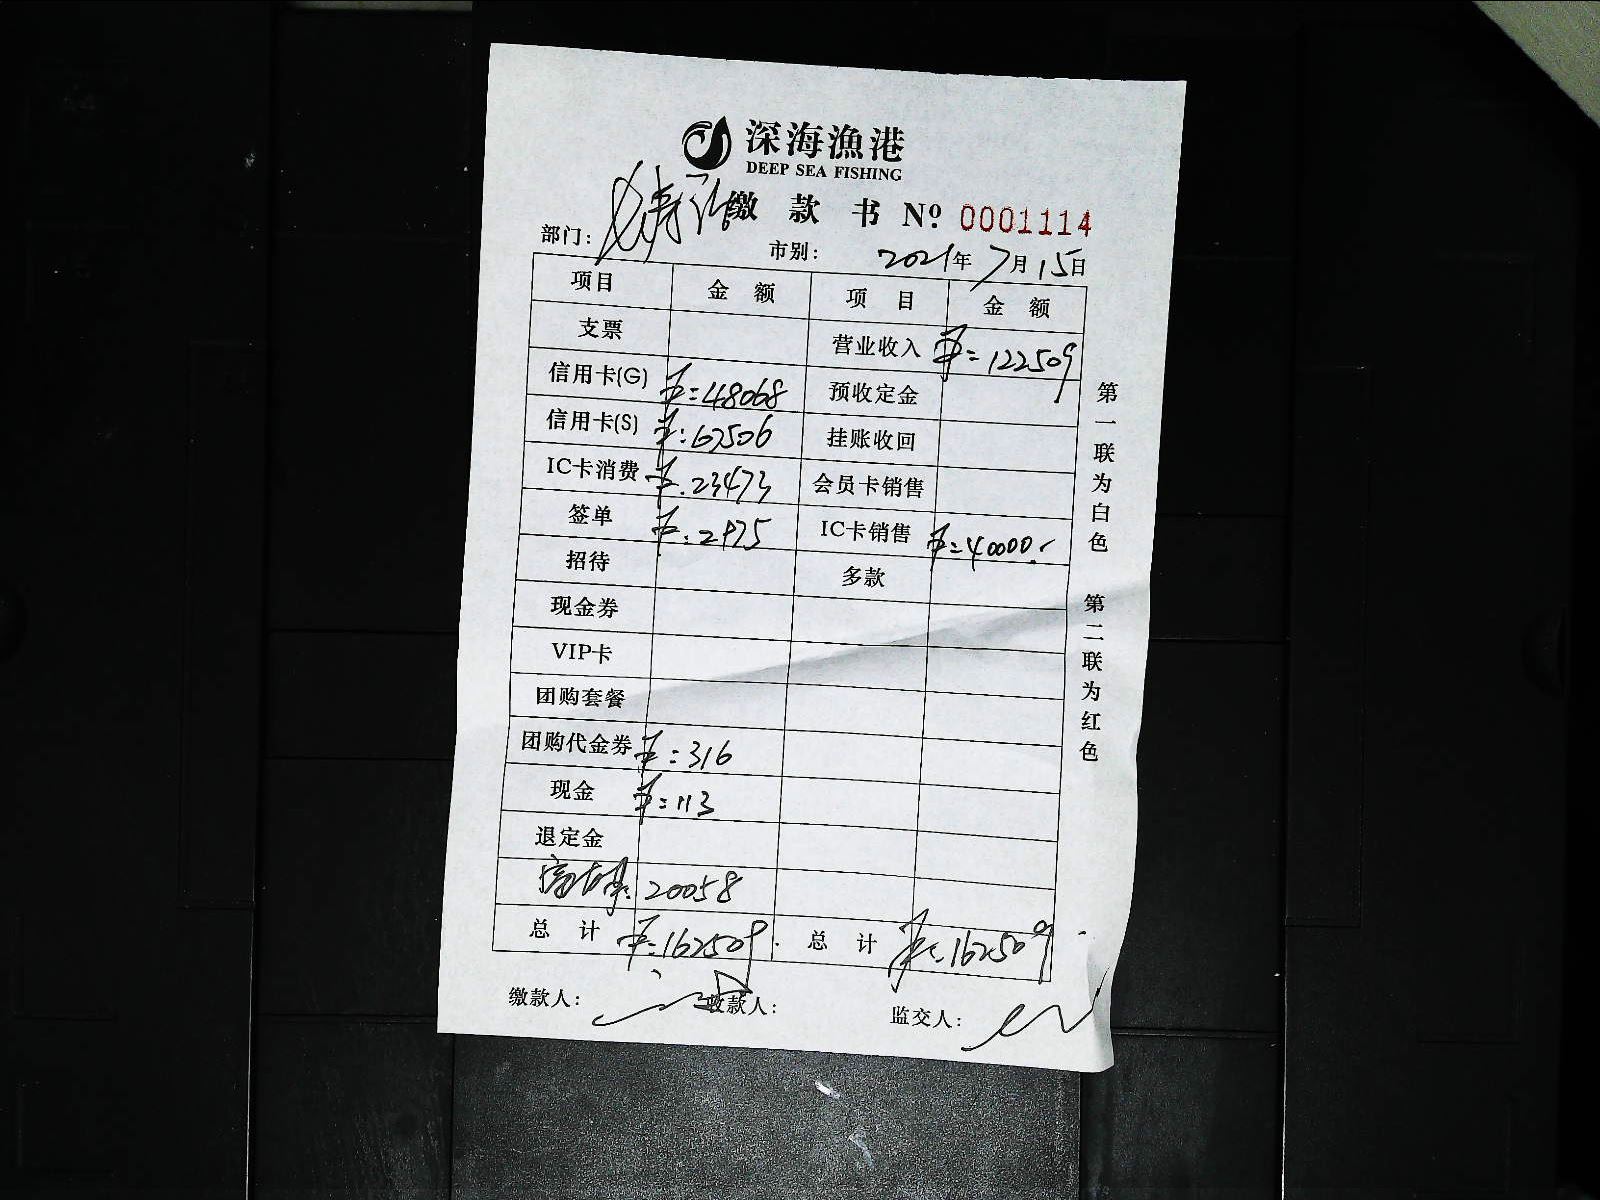 深海漁港
DEEP SEA FISHING
缴款书 Nº 0001114
部门: 市别: 2021年7月15日
项目 金额 项目 金额
支票 营业收入 ¥=122509
信用卡(G) ¥:48068 预收定金
信用卡(S) ¥:67506 挂账收回
IC卡消费 ¥.23473 会员卡销售
签单 ¥:2975 IC卡销售 ¥=40000.
招待 多款
现金券
VIP卡
团购套餐
团购代金券 ¥:316
现金 ¥:113
退定金
20058
总计 ¥:162509. 总计 ¥:162509
缴款人: 收款人: 监交人:
第一联为白色 第二联为红色